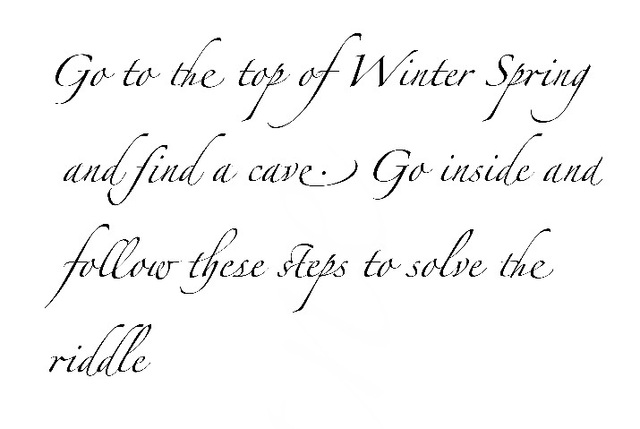 Go to the top of Winter Spring
and find a cave. Go inside and
follow these steps to solve the
riddle